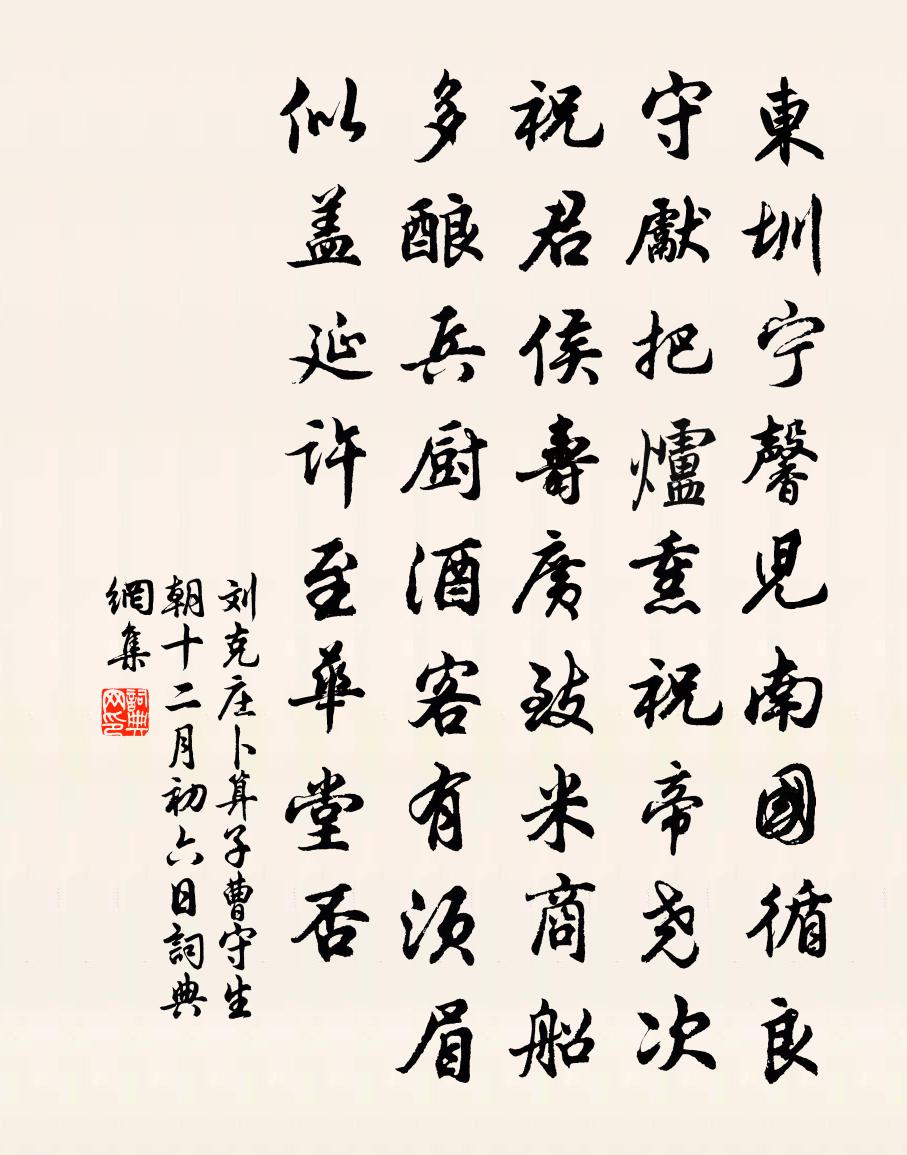 東圳宁馨児南國循良
守獻把爐熏祝帝尧次
祝君侯壽廣致米商船
多酿兵厨酒客有须眉
似盖延許至華堂否
刘克庄卜算子曹守生
朝十二月初六日詞典
網集
詞典
网印